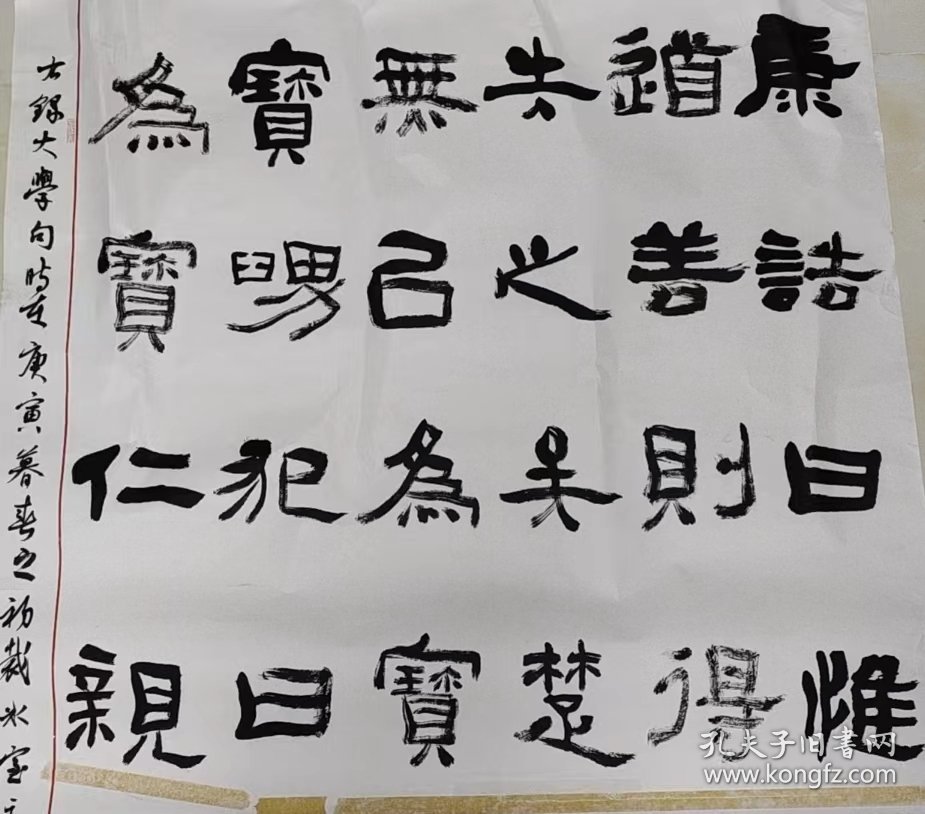 康誥曰惟
道善則得
失之矣楚
無㠯為寶
寶舅犯曰
為寶仁親
右錄大學句時在庚寅暮春之初裁冰室
孔夫子旧书网
www.kongfz.com